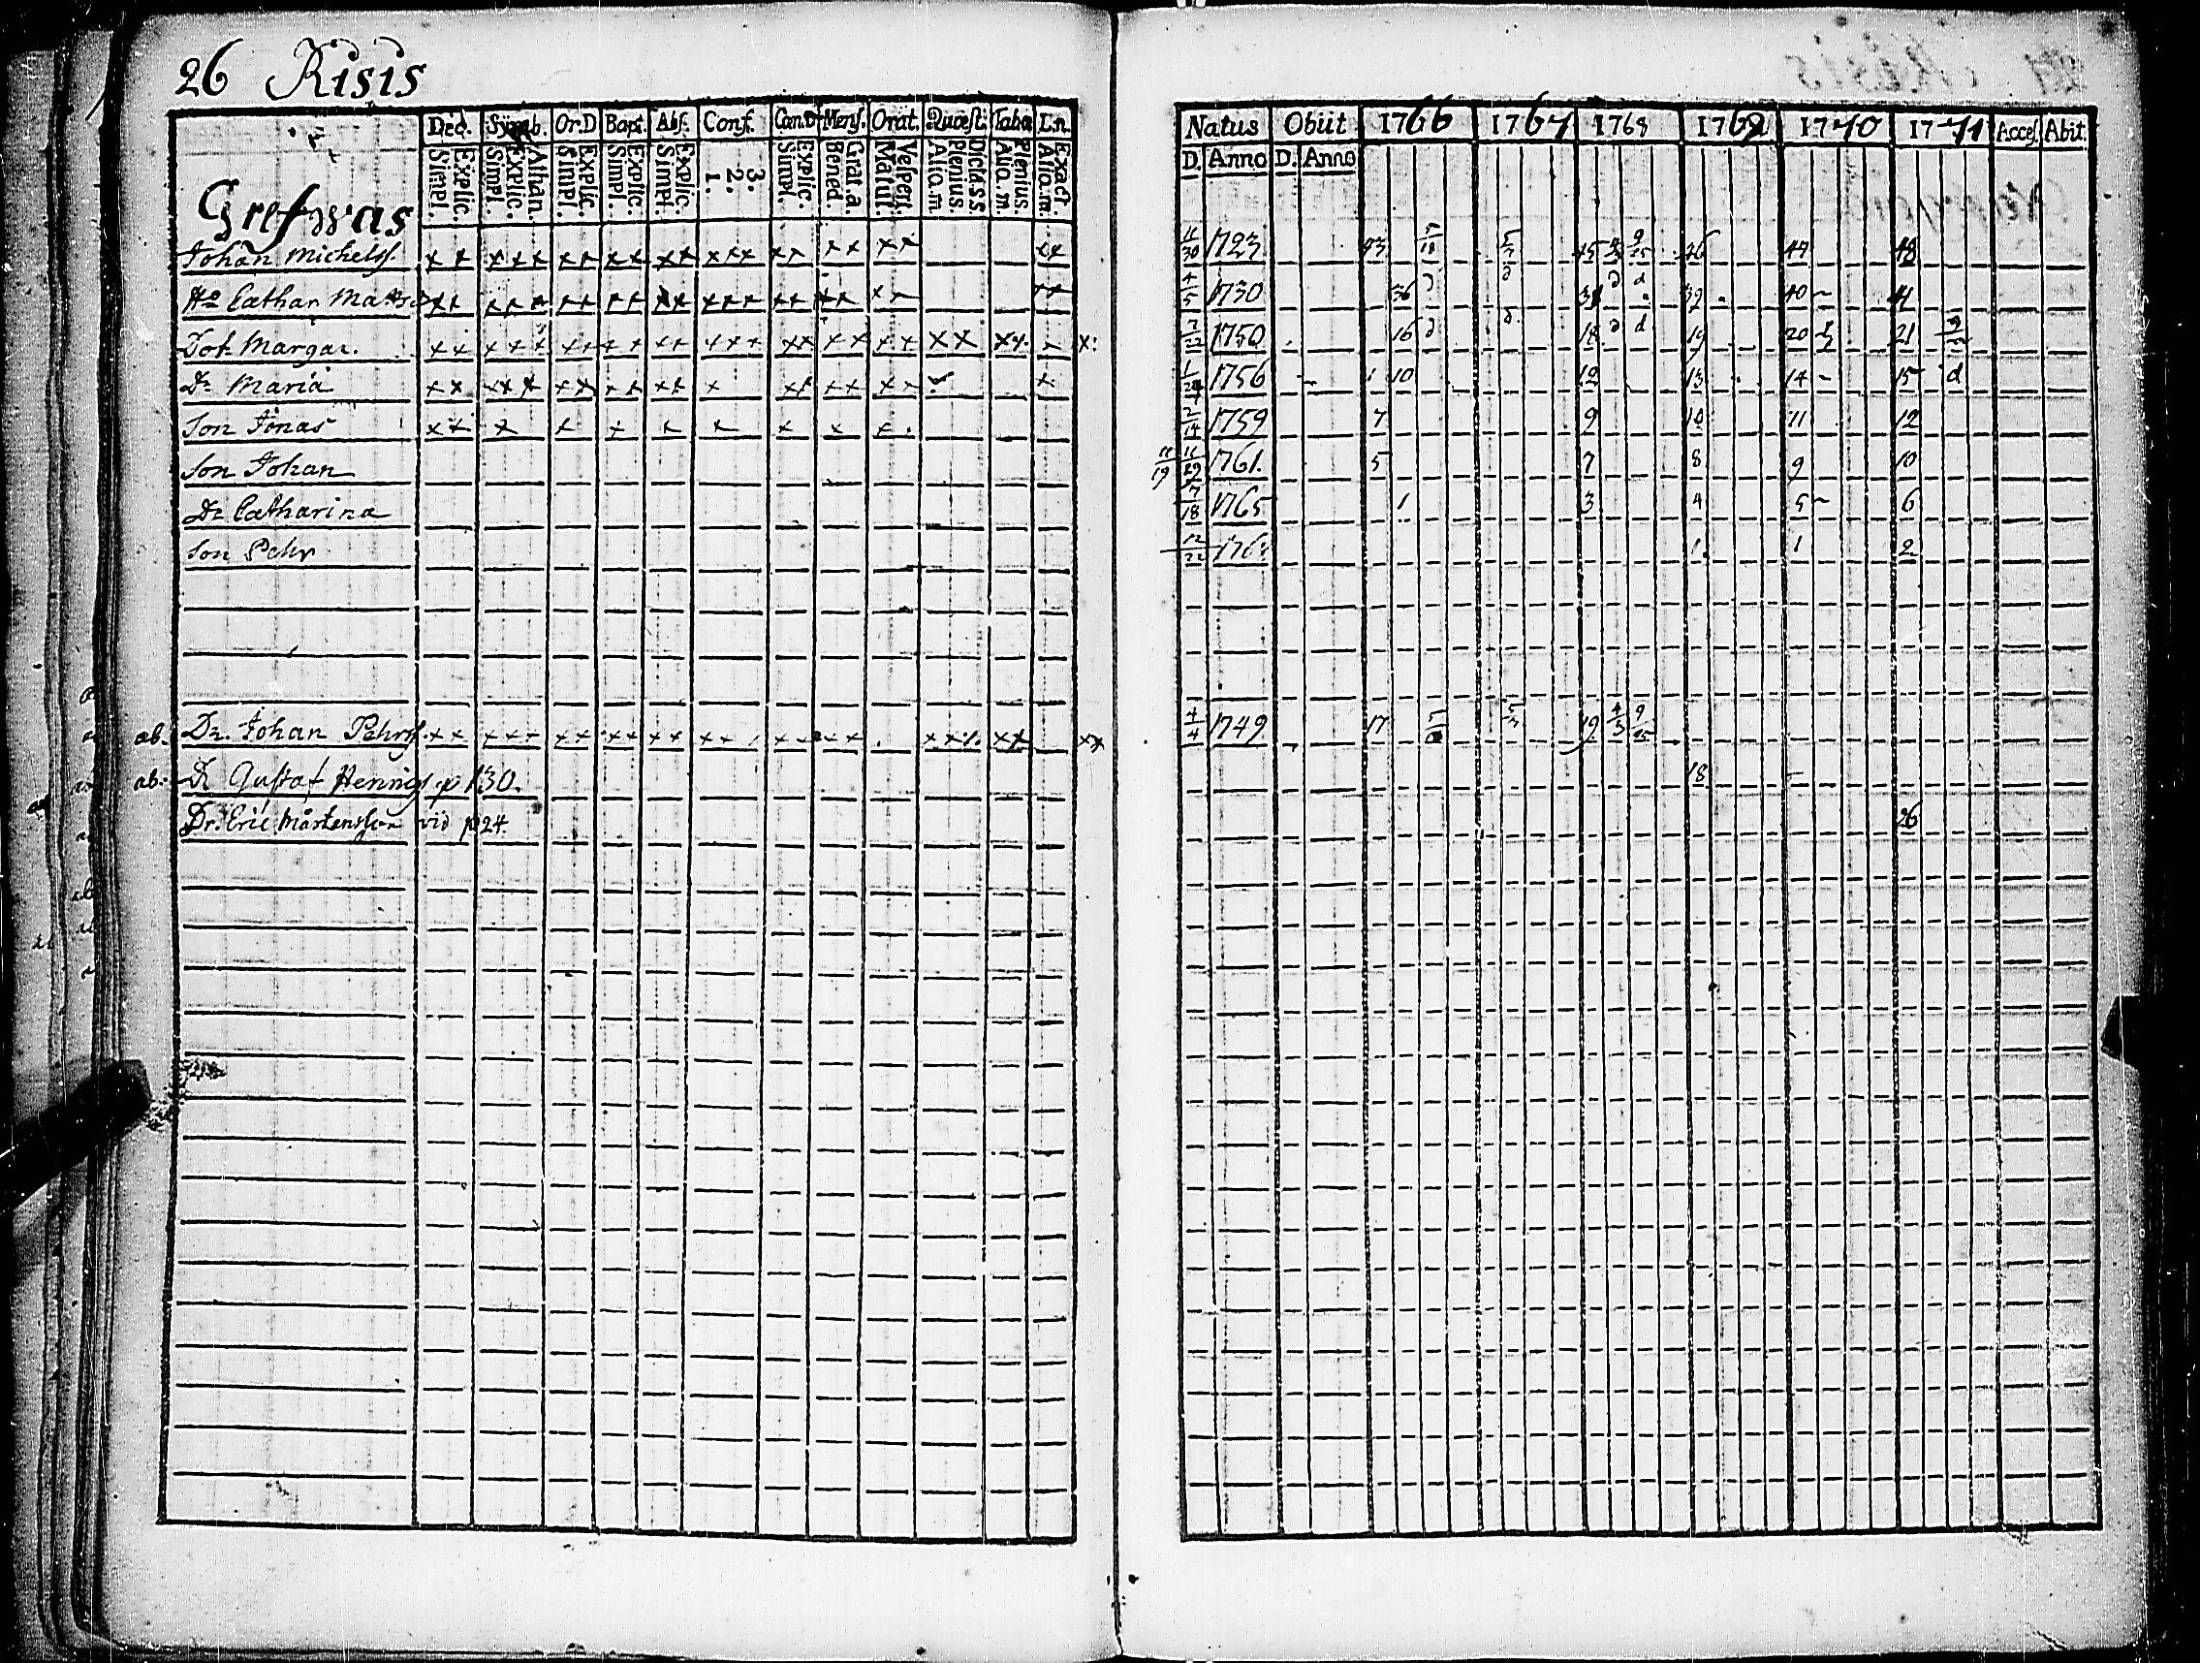 26 Risis
Dec. Symb. Or.D Bapt. Abs. Conf. Can.D Mens. Orat. Quæst. Taba L.n.
Explic. Simpl. Athan. Explic. Simpl. Explic. Simpl. Explic. Simpl. Explic. Simpl. 3. 2. 1. Explic. Simpl. Grat.a. Bened. Vespert. Matut. Dicta s.s. Plenius. Aliq.m Plenius. Aliq.m. Exact. Aliq.m.
Grefwas
Johan Michelss.
Hu Cathar Matts
Dot. Margar.
Dr Maria
Son Jonas
Son Johan
Dr Catharina
Son Pehr
ab. Dr. Johan Pehrss.
ab: Dr Gustaf Hennigs p 130.
Dr. Eric Mårtensson vid p 24.
Natus Obiit 1766 1767 1768 1769 1770 1771 Acces. Abit.
D. Anno D. Anno
11/30 1723. 43 5/18 5/3 45 9/25 46 47 48
4/5 1730 36 d d 38 d d 39 40 41
7/22 1750 16 d d 18 d d 19 20 21
1/24 1756 10 12 13 14 15 d
2/14 1759 7 9 10 11 12
11/19 11/29 1761. 5 7 8 9 10
7/18 1765 1 3 4 5 6
12/22 1 1 2
4/4 1749 17 5/3 19 4/3 9/25
18
26